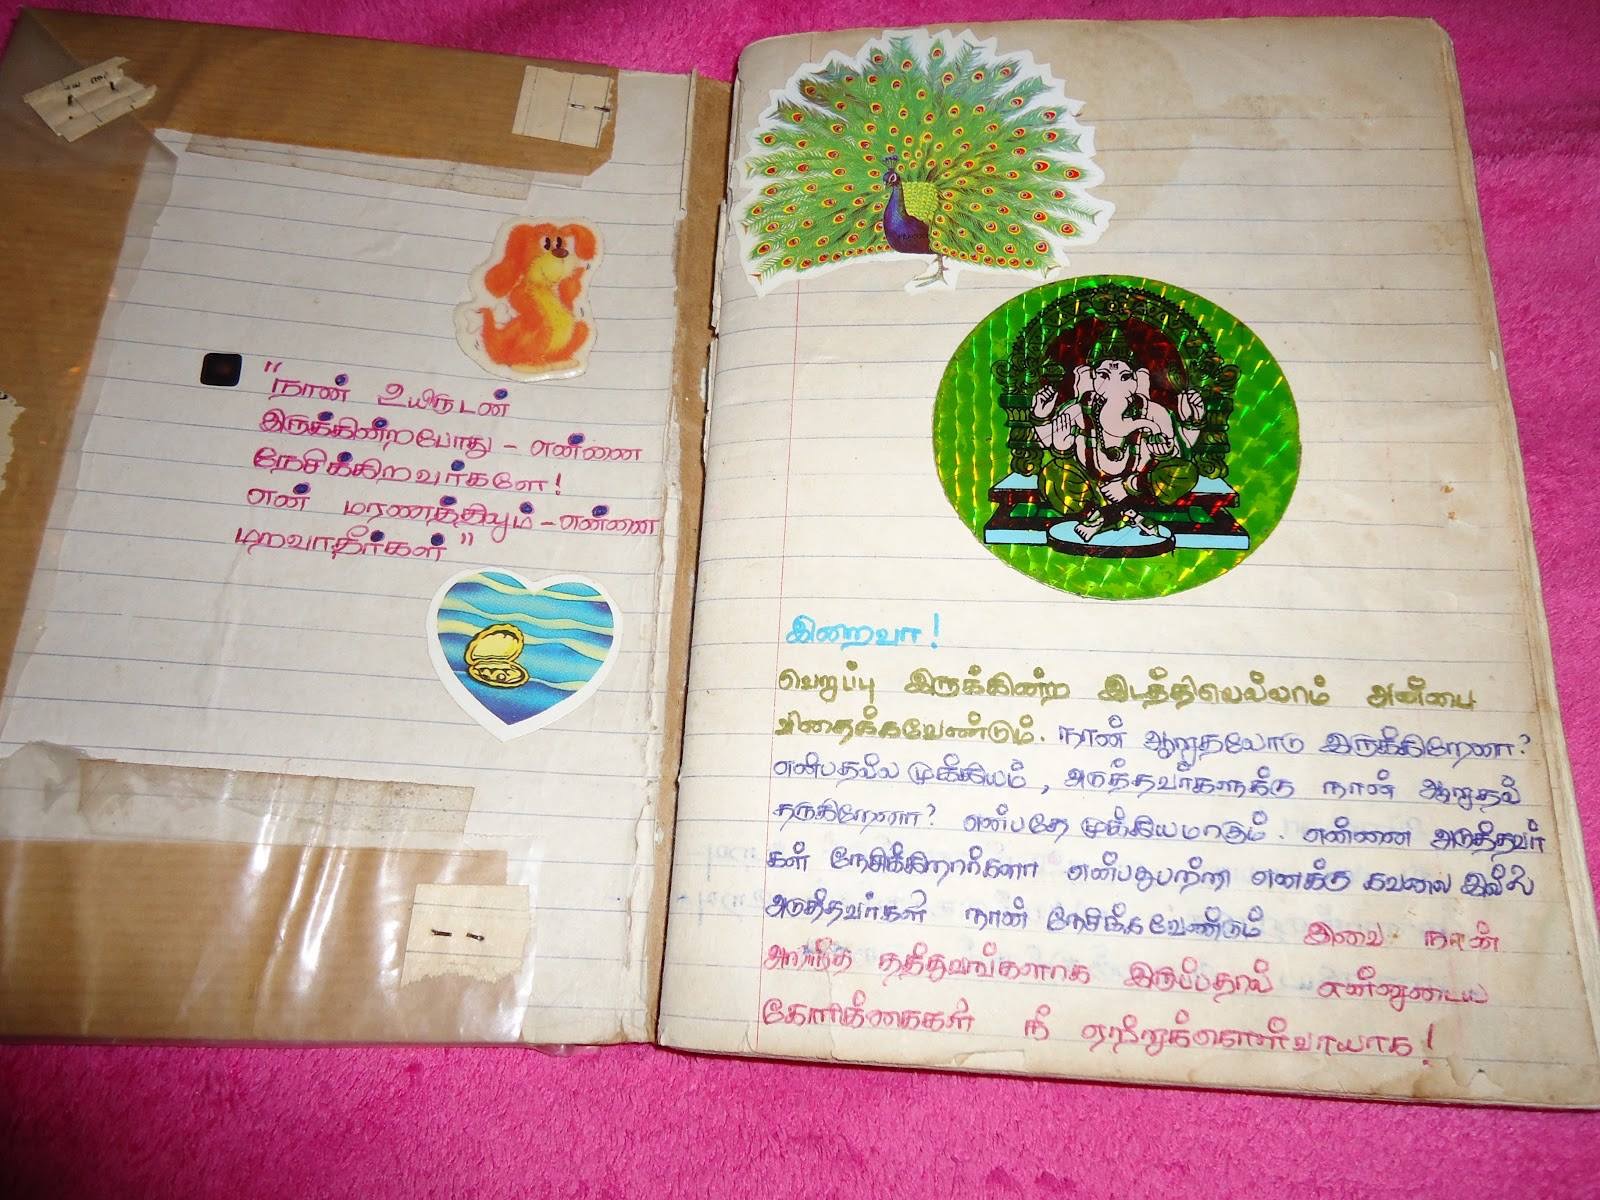 "நான் உயிருடன்
இருக்கின்றபோது - என்னை
நேசிக்கிறவர்களே!
என் மரணத்திலும் - என்னை
மறவாதீர்கள்"
இறைவா!
வெறுப்பு இருக்கின்ற இடத்திலெல்லாம் அன்பை
விதைக்கவேண்டும். நான் ஆறுதலோடு இருக்கிறேனா?
என்பதல்ல முக்கியம், அடுத்தவர்களுக்கு நான் ஆறுதல்
தருகிறேனா? என்பதே முக்கியமாகும். என்னை அடுத்தவர்
கள் நேசிக்கிறார்களா என்பதுபற்றி எனக்கு கவலை இல்லை
அடுத்தவர்கள் நான் நேசிக்கவேண்டும் இவை நான்
அறிந்த தத்துவங்களாக இருப்பதால் என்னுடைய
கோரிக்கைகள் நீ ஏற்றுக்கொள்வாயாக!